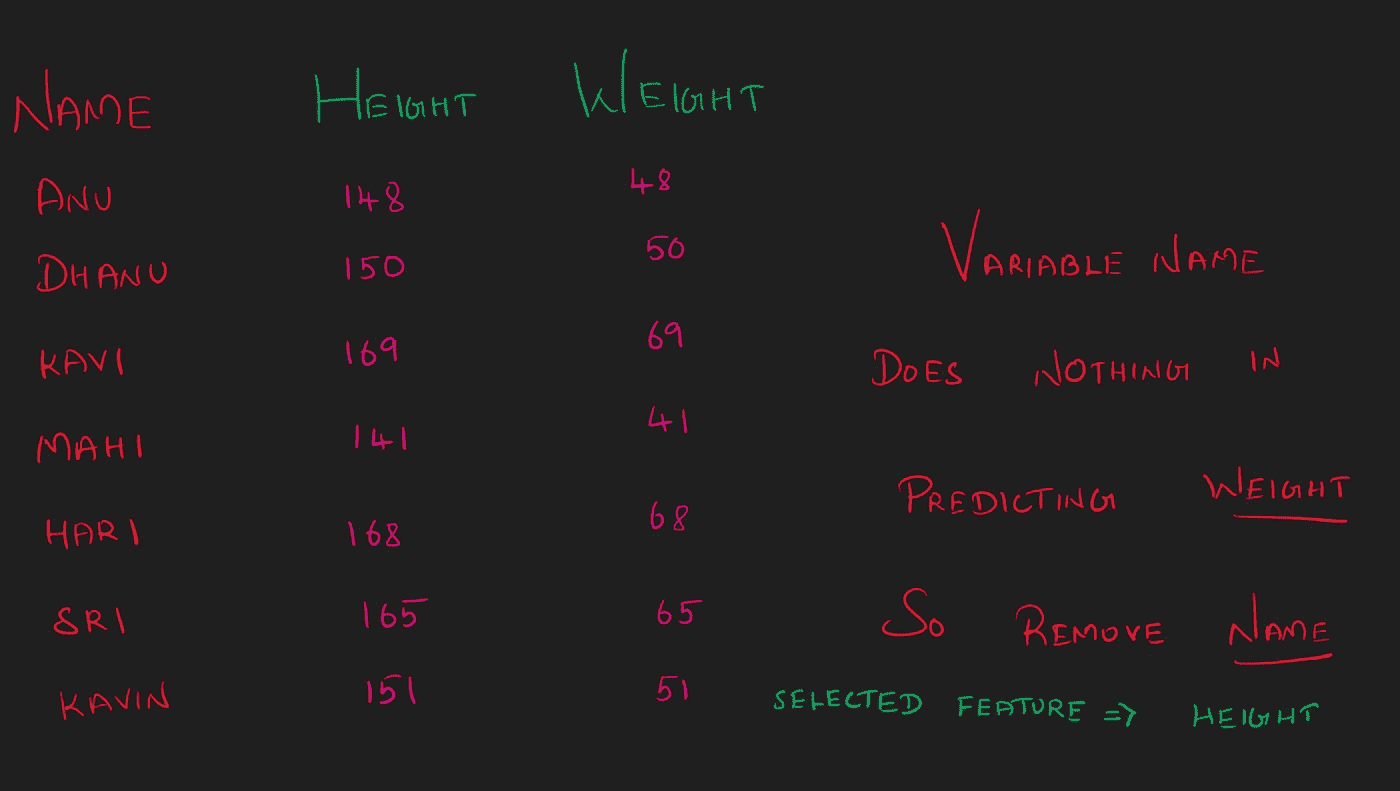 NAME HEIGHT WEIGHT
ANU 148 48
DHANU 150 50
KAVI 169 69
MAHI 141 41
HARI 168 68
SRI 165 65
KAVIN 151 51
VARIABLE NAME
DOES NOTHING IN
PREDICTING WEIGHT
SO REMOVE NAME
SELECTED FEATURE => HEIGHT